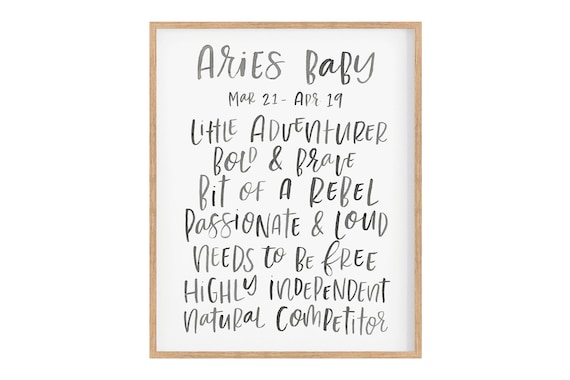 Aries Baby
Mar 21 - Apr 19
Little Adventurer
Bold & Brave
Bit of a Rebel
Passionate & Loud
Needs to be free
Highly independent
Natural Competitor